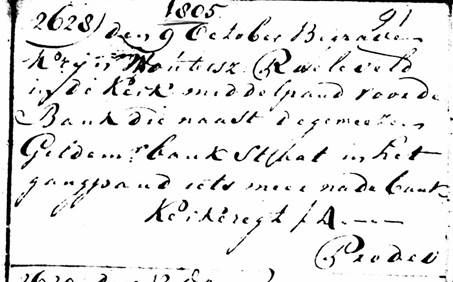 1805 91
2628/ den 9 October Begraven
Krijn Woutersz Roeleveld
in de Kerk middelpand voor de
Bank die naast de gemeetens
Geldem bank Sthat in het
gangpand iets meer na de bank
Kerkeregt f 4 - - -
Prodeo